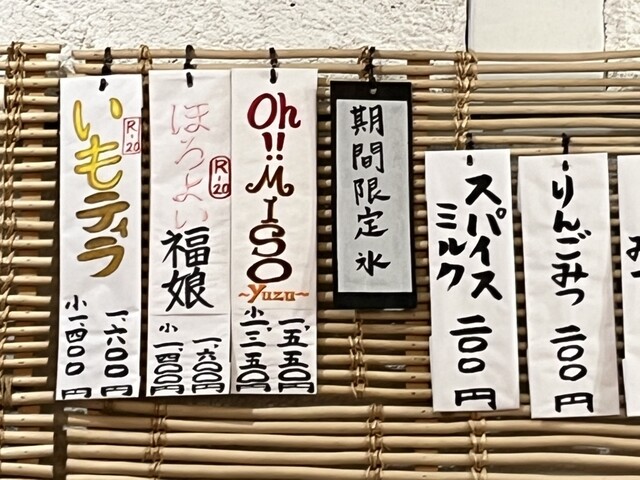 いもティラ
R-20
一、六〇〇円
小 一、四〇〇円
ほろよい
R-20
福娘
一、六〇〇円
小 一、四〇〇円
Oh!! MISO
~Yuzu~
一、五五〇円
小 一、三五〇円
期間限定氷
スパイス
ミルク
二〇〇円
りんごみつ 二〇〇円